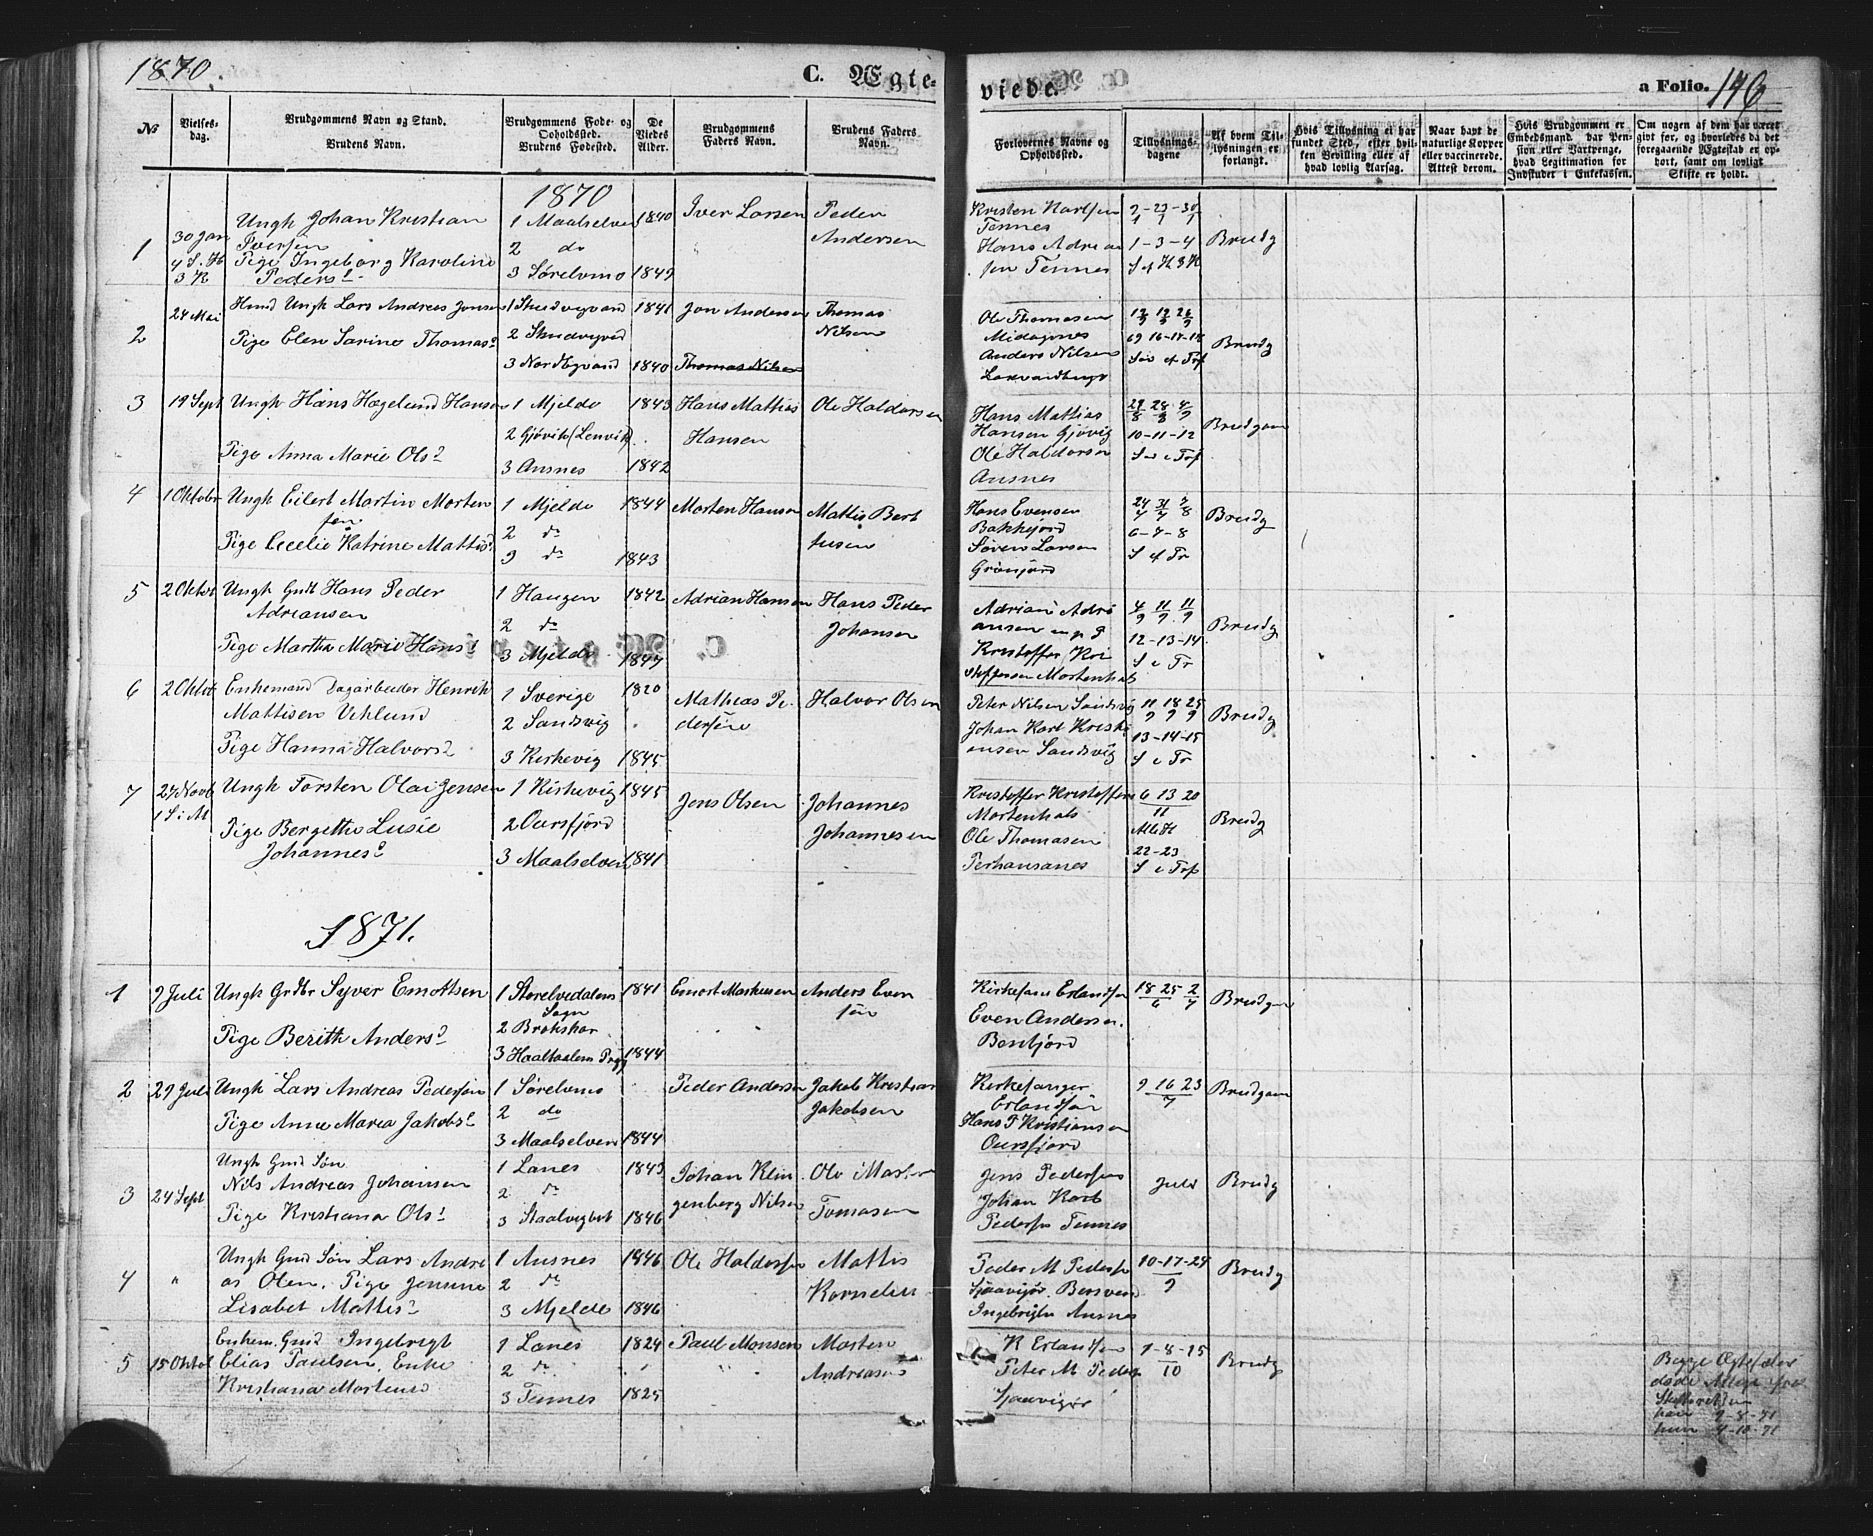 1870.
C. Ægte-
viede.
a Folio. 146
No
Vielses-
dag.
Brudgommens Navn og Stand.
Brudens Navn.
Brudgommens Føde- og
Opholdssted.
Brudens Fødested.
De
Viedes
Alder.
Brudgommens
Faders Navn.
Brudens Faders
Navn.
Forlovernes Navne og
Opholdssted.
Tillysnings-
dagene
Af hvem Til-
lysningen er
forlangt.
Hvis Tillysning ei har
fundet Sted, efter hvil-
ken Bevilling eller af
hvad lovlig Aarsag.
Naar havt de
naturlige Kopper
eller vaccinerede.
Attest derom.
Hvis Brudgommen er
Embedsmand, har Pen-
sion eller Vartpenge,
hvad Legitimation for
Indskuder i Enkekassen.
Om nogen af dem har været
gift før, og hvorledes da det
foregaaende Ægteskab er op-
hørt, samt om lovligt
Skifte er holdt.
1870
1
30 Jan
4 S. H
3 K
Ungk Johan Kristian
Iversen
Pige Ingeborg Karoline
Peders d
1 Maalselven
2 do
3 Sørelvmo
1840
1849
Iver Larsen
Peder
Andersen
Kristen Karlsen
Tennes
Hans Adrian
sen Tennes
9 - 23 - 30
1 1 1
1 - 3 - 4
Brudg
2
24 Mai
Ungk Lars Andreas Jonsen
Pige Elen Sarine Thomas d
1 Skudvigvand
2 Skudvigvd
3 Nordbyvand
1841
1840
Jon Andersen
Thomas Nilsen
Thomas
Nilsen
Ole Thomasen
Anders Nilsen
Brudg
3
19 Sept
Ungk Hans Hagelund Hansen
Pige Anna Marie Ols d
1 Mjelde
2 Gjøvik (Lenvik)
3 Ansnes
1843
1842
Hans Mattias
Hansen
Ole Haldorsen
Hans Mattias
Hansen Gjøvig
Ole Haldorsen
Ansnes
10 - 11 - 12
Brudgom
4
1 Oktober
Ungk Eilert Martin Morten
sen
Pige Cecelie Katrine Mattis d
1 Mjelde
2 do
3 do
1844
1843
Morten Hansen
Mattis Bert
Hans Evensen
Bakkejord
Søren Larsen
Grønjord
24 31 7
7 7 8
6 - 7 - 8
Brudg
5
2 Oktob
Ungk Gmdb Hans Peder
Adriansen
Pige Martha Marie Hans d
1 Haugen
2 do
3 Mjelde
1842
1847
Adrian Hansen
Hans Peder
Johansen
Adrian Adri
ansen
Kristoffer Kri
stoffersen Mortenhals
4 11 11
9 9 9
12 - 13 - 14
Brudg
6
2 Oktob
Enkemand Dagarbeider Henrik
Mattisen Uhlund
Pige Hanna Halvors d
1 Sverige
2 Sandsvig
3 Kirkevig
1820
1845
Mathias Pe
dersen
Halvor Olsen
Peter Nilsen Sandsvig
Johan Karl Kristi
ansen Sandsvig
11 18 25
9 9 9
13 - 14 - 15
Brudg
7
27 Novb
1 S i A
Ungk Torsten Olai Jensen
Pige Bergitha Lusie
Johannes d
1 Kirkevig
2 Oursfjord
3 Maalselven
1845
1841
Jens Olsen
Johannes
Johannesen
Kristoffer Kristoffers
Mortenhals
Ole Thomasen
Perhansanes
6 13 20
11
22 - 23
Brudg
1871.
1
9 Juli
Ungk Grdbr Syver Emottsen
Pige Berith Anders d
1 Storelvedalens
Sogn
2 Brokskar
3 Haaltaalem Prgj
1841
1844
Emort Markusen
Anders Even
sen
Kirkesanr Erlandsen
Even Andersen
Bentjord
18 25 2
6 7
Brudgom
2
29 Juli
Ungk Lars Andreas Pedersen
Pige Anne Marea Jakobs d
1 Sørelvmo
2 do
3 Maalselven
1844
Peder Andersen
Jakob Kristian
Jakobsen
Kirkesanger
Erlandsen
Hans P Kristiansen
Oursfjord
9 16 23
7
Brudgom
3
24 Sept
Ungk Gmd Søn
Nils Andreas Johansen
Pige Kristiana Ols d
1 Lanes
2 do
3 Staalvigbot
1843
1846
Johan Klin
genberg Nilsen
Ole Marti
Tomasen
Jens Pedersen
Johan Karl
Pedersen Tennes
Juli
Brudg
4
"
Ungk Gmd Søn Lars Andre
as Olen. Pige Jensine
Lisabet Mattis d
1 Ansnes
2 do
3 Mjelde
1846
1846
Ole Haldorsen
Mattis
Kornelius
Peder M Pedersen
Ingebrigtn Ansnes
10 - 17 - 24
9
Brudg
5
15 Oktob
Enkem. Gmd Ingebrigt
Elias Paulsen, Enke
Kristiana Mortensd
1 Lanes
2 do
3 Tennes
1824
1825
Paul Monsen
Morten
Andreasen
K Erlandsen
Peter M Peders
Sjaavigør
1 - 8 - 15
10
Brudg
Begge Ægtefæller
døde Attest fra
Skifteretten
han 9-8-71
hun 4-10-71